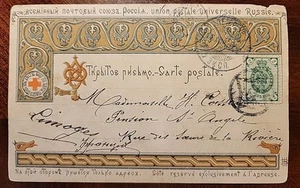 ВСЕМIРНЫЙ ПОЧТОВЫЙ СОЮЗЪ. РОССIЯ. UNION POSTALE UNIVERSELLE. RUSSIE.
ОТКРЫТОЕ ПИСЬМО.—CARTE POSTALE.
Mademoiselle H.
Pension Ste Angèle
Limoges
Rue des Sœurs de la Rivière
НА ЭТОЙ СТОРОНѢ ПИШЕТСЯ ТОЛЬКО АДРЕСЪ. CÔTÉ RÉSERVÉ EXCLUSIVEMENT À L'ADRESSE.